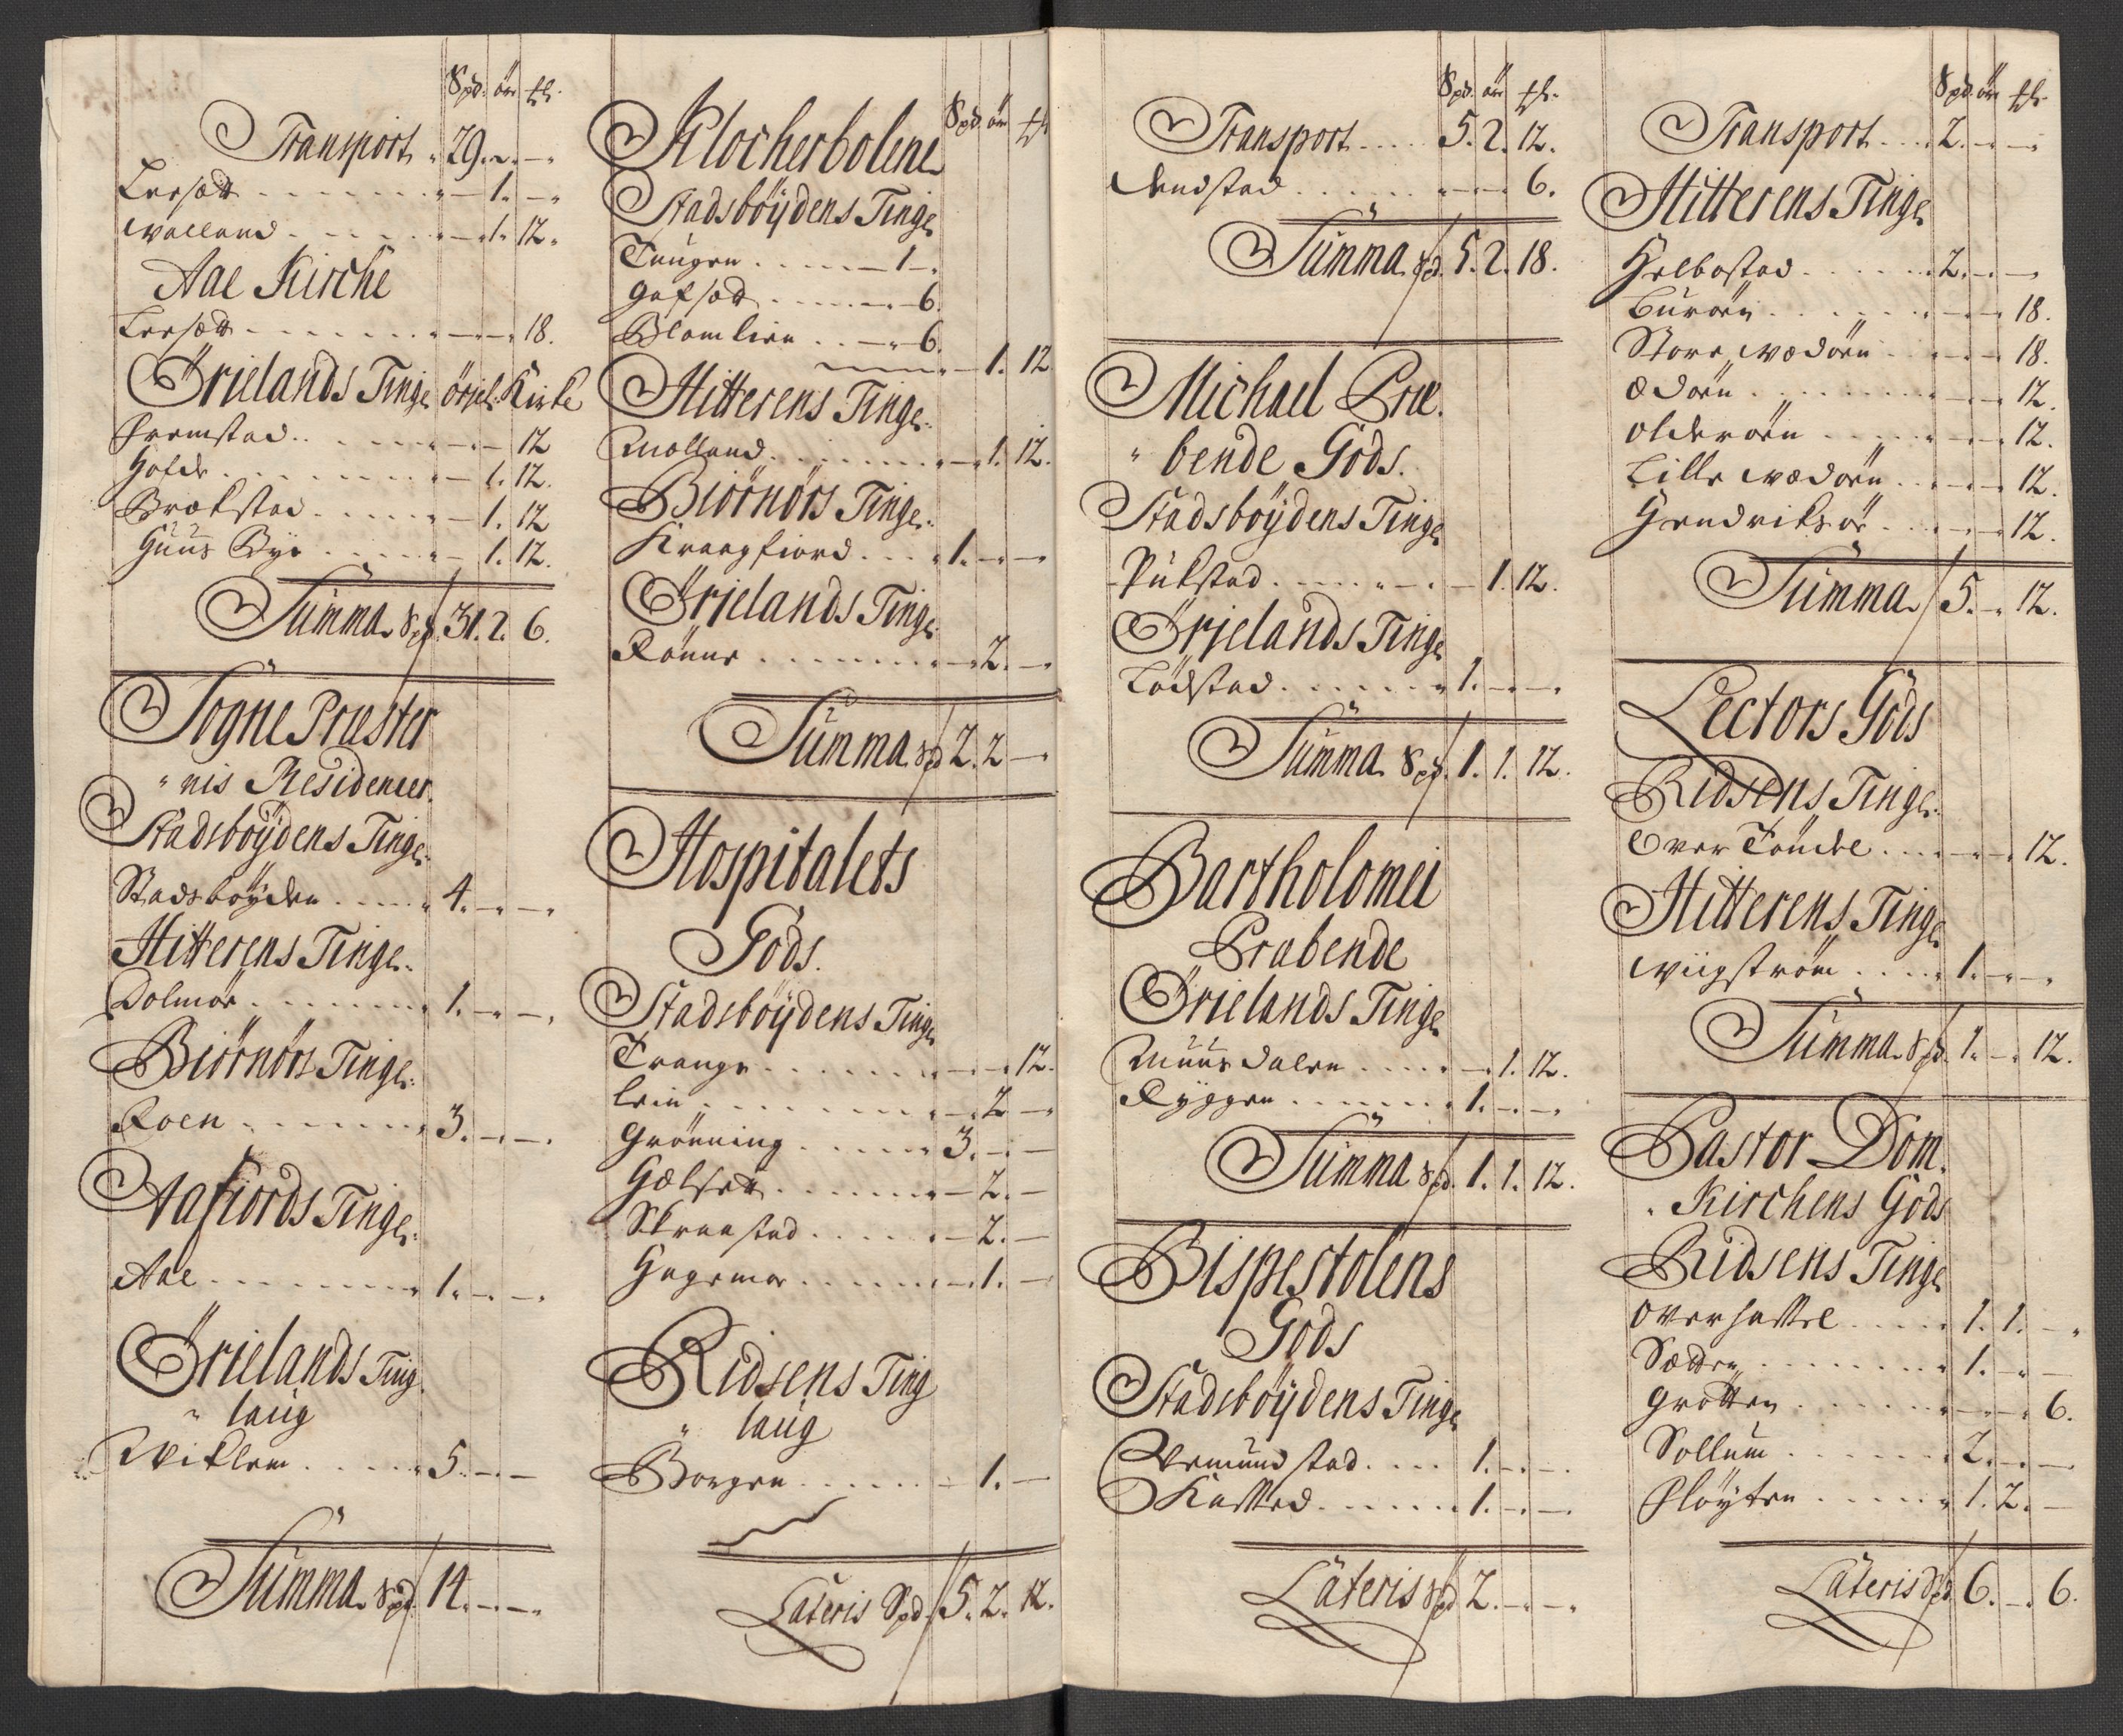 Spd. ör th.
Transport . 29. 2. –
Lersæt . . . – 1. –
Walland . . . – 1. 12.
Aae Kirche
Lersæt . . . – – 18.
Örielands Tingl. örjel. Kirke
Fremstad . . . – – 12
Hofde . . . – 1. 12.
Brækstad . . . – 1. 12
Huus Bye . . . – 1. 12.
Summa Spd. 31. 2. 6.
Sogne Præster
" nis Residencer.
Stadsböÿdens Tingl.
Stadsböÿden . . . 4. – –
Hitterens Tingl.
Dolmör . . . 1. – –
Biörnörs Tingl.
Roen . . . 3. – –
Aafiords Tingl.
Aae . . . 1. – –
Örielands Ting
" laug
Wiklem . . . 5. – –
Summa Spd. 14. – –
Spd ör th
Klocherbolene
Stadsböÿdens Tingl
Tungen . . . – 1 –
Gafsæt . . . – 6.
Blomlien . . . – 6.
– 1. 12
Hitterens Tingl.
Molland . . . – 1. 12.
Biörnörs Tingl.
Kraagfiord . . . 1. – –
Örjelands Tingl.
Rönne . . . – 2. –
Summa Spd 2. 2 –
Hospitalets
Gods.
Stadsböÿdens Tingl
Trange . . . – – 12.
Lein . . . – 2 –
Grönning . . . 3. – –
Hælset . . . – 2. –
Skraastad . . . – 2. –
Hagemor . . . – 1. –
Ridsens Ting
" laug
Borgen . . . – 1. –
Lateris Spd 5. 2. 12.
Spd. ör th.
Transport . . . 5. 2. 12.
Wendstad . . . – – 6.
Summa Spd. 5. 2. 18.
Michael Præ.
" bende Gods.
Stadsböÿdens Tingl
Pukstad . . . – 1. 12.
Örjelands Tingl
Lödstad . . . 1. – –
Summa Spd. 1. 1. 12.
Bartholomei
Præbende
Örielands Tingl
Muusdalen . . . – 1. 12.
Ryggen . . . 1. – –
Summa Spd. 1. 1. 12.
Bispestolens
Gods
Stadsböÿdens Tingl
Vemundstad . . . 1. – –
Kasted . . . 1. – –
Lateris Spd 2. – –
Spd. ör th.
Transport . . . 2. – –
Hitterens Tingl
Helbostad . . . 2. – –
Buröen . . . – – 18.
Store Wædöen . . . – – 18.
Ædöen . . . – – 12.
Olderöen . . . – – 12.
Lille Wædöen . . . – – 12.
Hendriksör . . . – – 12.
Summa 5. – 12.
Lectors Gods
Ridsens Tingl.
Over Töndel . . . – – 12.
Hitterens Tingl
Wiigström . . . 1. – –
Summa Spd. 1. – 12.
Pastor Dom.
" Kirchens Gods
Ridsens Tingl
Overhassel . . . 1. 1. –
Sætten . . . 1. – –
Grötten . . . – – 6.
Sollum . . . 2. – –
Flöÿten . . . 1. 2. –
Lateris Spd 6. – 6.